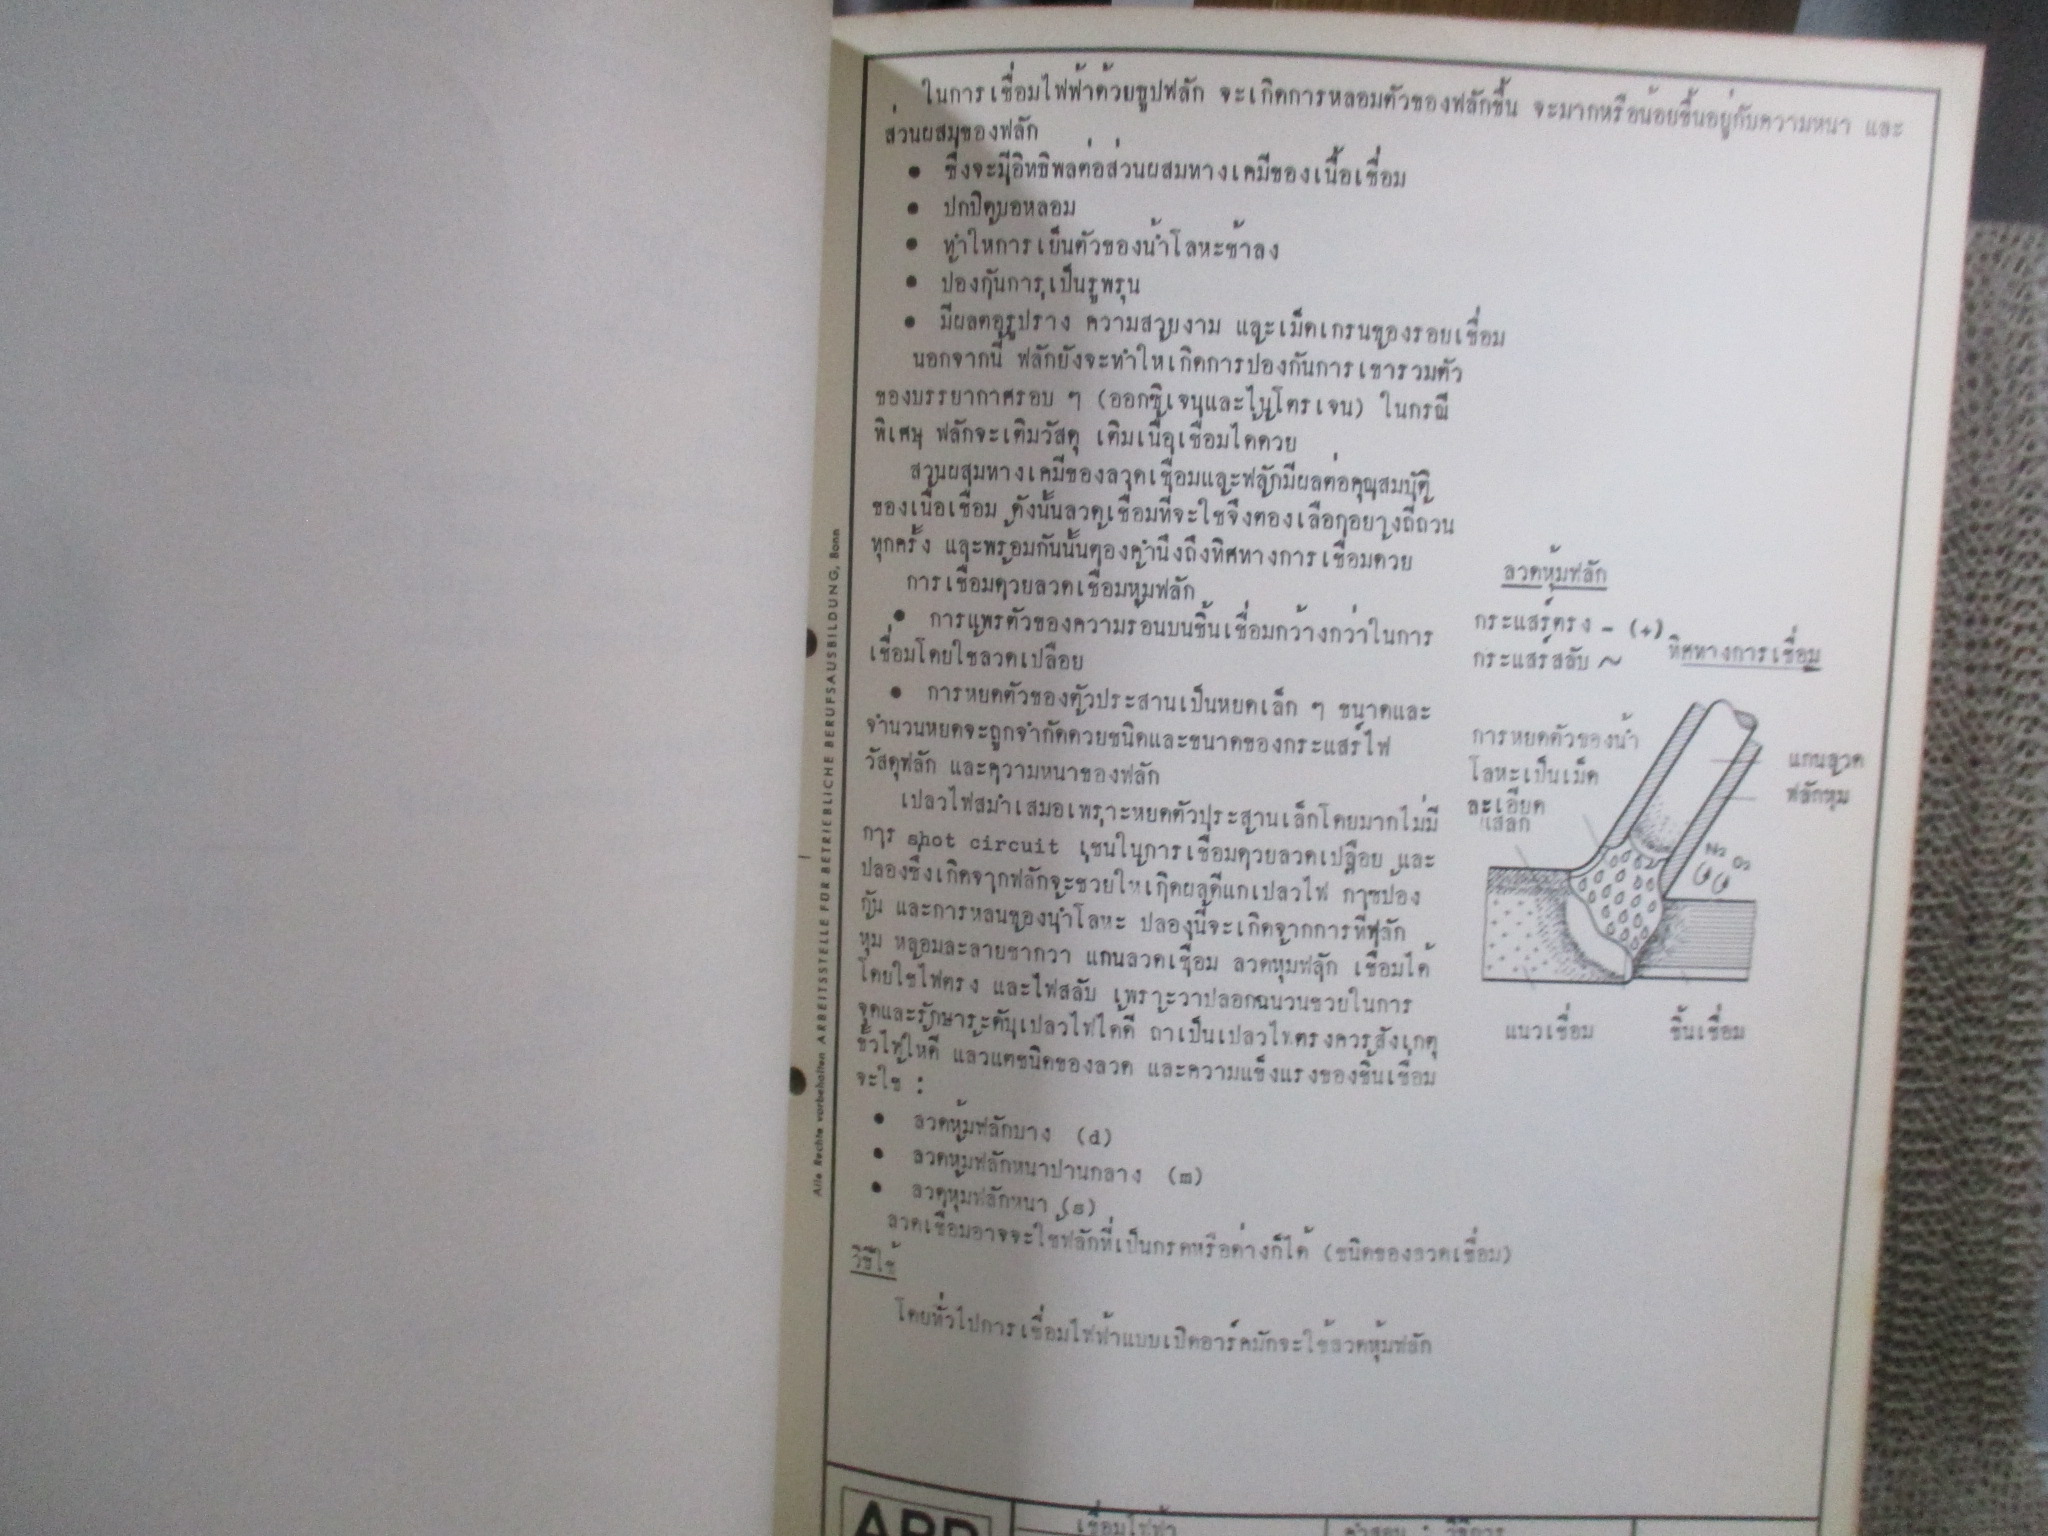 ในการเชื่อมไฟฟ้าด้วยธูปฟลัก จะเกิดการหลอมตัวของฟลักขึ้น จะมากหรือน้อยขึ้นอยู่กับความหนา และ
ส่วนผสมของฟลัก
● ซึ่งจะมีอิทธิพลต่อส่วนผสมทางเคมีของเนื้อเชื่อม
● ปกปิดบ่อหลอม
● ทำให้การเย็นตัวของน้ำโลหะช้าลง
● ป้องกันการเป็นรูพรุน
● มีผลต่อรูปร่าง ความสวยงาม และเม็ดเกรนของรอยเชื่อม
นอกจากนี้ ฟลักยังจะทำให้เกิดการป้องกันการเข้ารวมตัว
ของบรรยากาศรอบ ๆ (ออกซิเจนและไนโตรเจน) ในกรณี
พิเศษ ฟลักจะเติมวัสดุ เติมเนื้อเชื่อมได้ด้วย
ส่วนผสมทางเคมีของลวดเชื่อมและฟลักมีผลต่อคุณสมบัติ
ของเนื้อเชื่อม ดังนั้นลวดเชื่อมที่จะใช้จึงต้องเลือกอย่างถี่ถ้วน
ทุกครั้ง และพร้อมกันนั้นต้องคำนึงถึงทิศทางการเชื่อมด้วย
การเชื่อมด้วยลวดเชื่อมหุ้มฟลัก
● การแพร่ตัวของความร้อนบนชิ้นเชื่อมกว้างกว่าในการ
เชื่อมโดยใช้ลวดเปลือย
● การหยดตัวของตัวประสานเป็นหยดเล็ก ๆ ขนาดและ
จำนวนหยดจะถูกจำกัดด้วยชนิดและขนาดของกระแสร์ไฟ
วัสดุฟลัก และความหนาของฟลัก
เปลวไฟสม่ำเสมอเพราะหยดตัวประสานเล็กโดยมากไม่มี
การ shot circuit เช่นในการเชื่อมด้วยลวดเปลือย และ
ปล่องซึ่งเกิดจากฟลักจะช่วยให้เกิดผลดีแก่เปลวไฟ ก๊าซป้อง
กัน และการหล่นของน้ำโลหะ ปล่องนี้จะเกิดจากการที่ฟลัก
หุ้ม หลอมละลายช้ากว่า แกนลวดเชื่อม ลวดหุ้มฟลัก เชื่อมได้
โดยใช้ไฟตรง และไฟสลับ เพราะว่าปลอกฉนวนช่วยในการ
จุดและรักษาระดับเปลวไฟได้ดี ถ้าเป็นเปลวไฟตรงควรสังเกตุ
ขั้วไฟให้ดี แล้วแต่ชนิดของลวด และความแข็งแรงของชิ้นเชื่อม
จะใช้ :
● ลวดหุ้มฟลักบาง (d)
● ลวดหุ้มฟลักหนาปานกลาง (m)
● ลวดหุ้มฟลักหนา (s)
ลวดเชื่อมอาจจะใช้ฟลักที่เป็นกรดหรือด่างก็ได้ (ชนิดของลวดเชื่อม)
วิธีใช้
โดยทั่วไปการเชื่อมไฟฟ้าแบบเปิดอาร์คมักจะใช้ลวดหุ้มฟลัก
ลวดหุ้มฟลัก
กระแสร์ตรง - (+)
กระแสร์สลับ ~
ทิศทางการเชื่อม
การหยดตัวของน้ำ
โลหะเป็นเม็ด
ละเอียด
แกนลวด
ฟลักหุ้ม
N₂ O₂
แนวเชื่อม
ชิ้นเชื่อม
Alle Rechte vorbehalten ARBEITSSTELLE FÜR BETRIEBLICHE BERUFSAUSBILDUNG, Bonn
เชื่อมไฟฟ้า